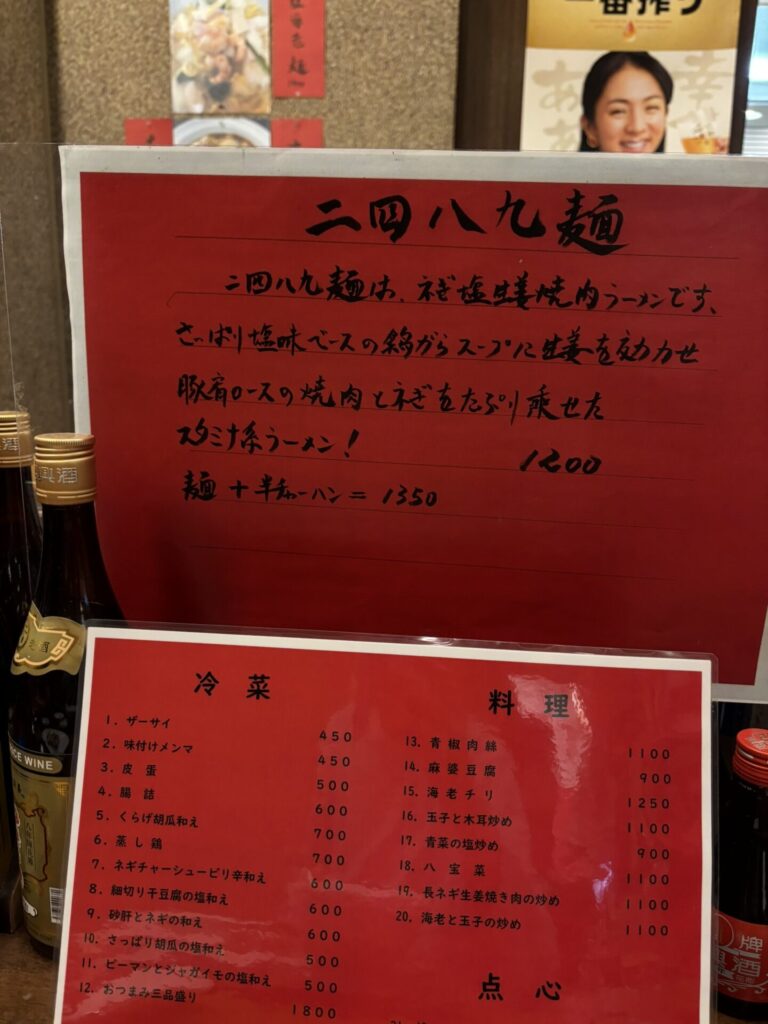 一番搾り
二四八九麺
二四八九麺は、ネギ塩生姜焼肉ラーメンです、
さっぱり塩味ベースの鶏がらスープに生姜を効かせ
豚肩ロースの焼肉とネギをたっぷり乗せた
スタミナ系ラーメン！
1200
麺＋半チャーハン＝1350
冷菜
1. ザーサイ 450
2. 味付けメンマ 450
3. 皮蛋 500
4. 腸詰 600
5. くらげ胡瓜和え 700
6. 蒸し鶏 700
7. ネギチャーシューピリ辛和え 600
8. 細切り干豆腐の塩和え 600
9. 砂肝とネギの和え 600
10. さっぱり胡瓜の塩和え 500
11. ピーマンとジャガイモの塩和え 500
12. おつまみ三品盛り 1800
料理
13. 青椒肉絲 1100
14. 麻婆豆腐 900
15. 海老チリ 1250
16. 玉子と木耳炒め 1100
17. 青菜の塩炒め 900
18. 八宝菜 1100
19. 長ネギ生姜焼き肉の炒め 1100
20. 海老と玉子の炒め 1100
点心
RICE WINE